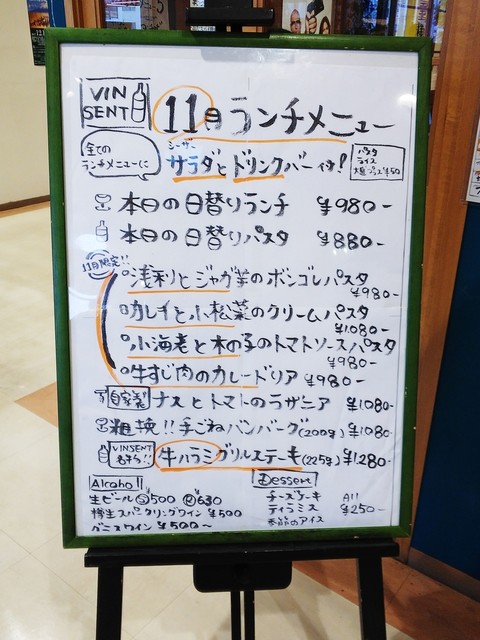 VIN SENT
11月ランチメニュー
全ての
ランチメニューに
シーザー
サラダとドリンクバー付!
パスタ
ライス
大盛 プラス ¥50
本日の日替りランチ ¥980-
本日の日替りパスタ ¥880-
11月限定!!
浅利とジャガ芋のボンゴレパスタ
¥980-
カレイと小松菜のクリームパスタ
¥1.080-
小海老と木の子のトマトソースパスタ
¥980-
牛すじ肉のカレードリア ¥980-
自家製 ナスとトマトのラザニア ¥1.080-
粗挽!! 手ごねハンバーグ(200g) ¥1.080-
VINSENT
名物!! 牛ハラミグリルステーキ(225g) ¥1.280-
Alcohol!!
生ビール ¥500 ¥630
樽生スパークリングワイン ¥500
グラスワイン ¥500〜
Dessert
チーズケーキ All
ティラミス ¥250-
季節のアイス